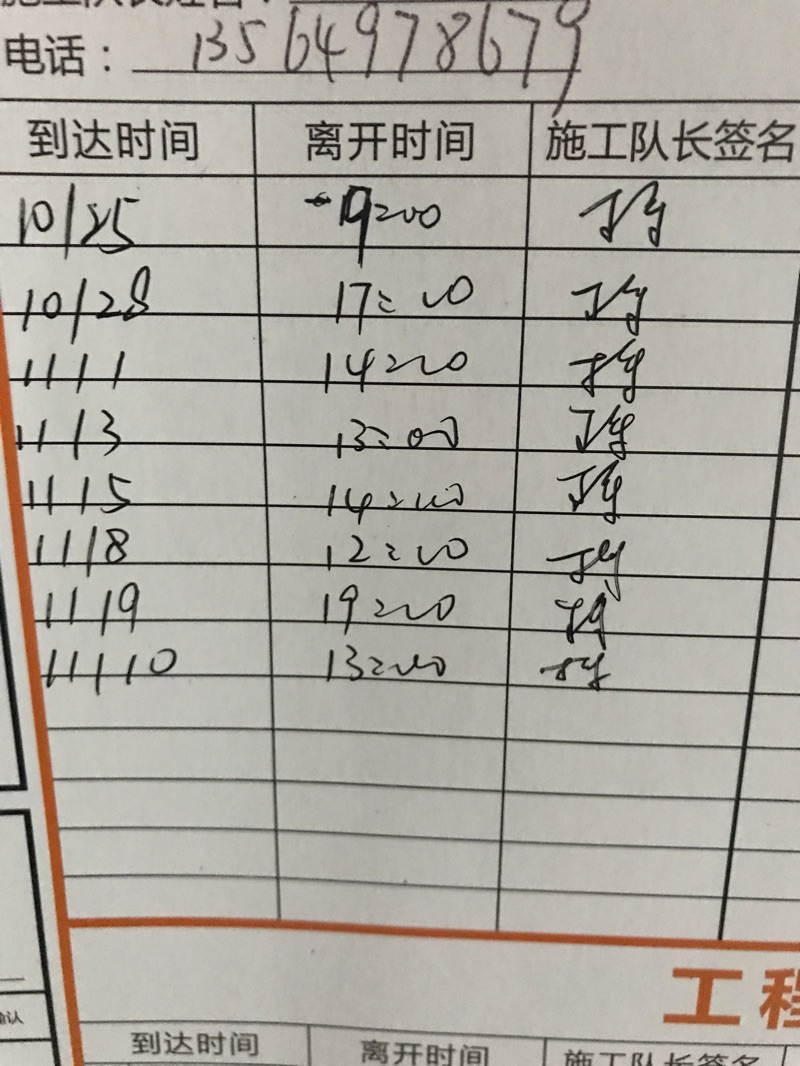 电话：13564978679
到达时间 离开时间 施工队长签名
10/25 19:00
10/28 17:00
11/1 14:00
11/3 13:00
11/5 14:00
11/8 12:00
11/9 19:00
11/10 13:00
工程
确认
到达时间 离开时间 施工队长签名